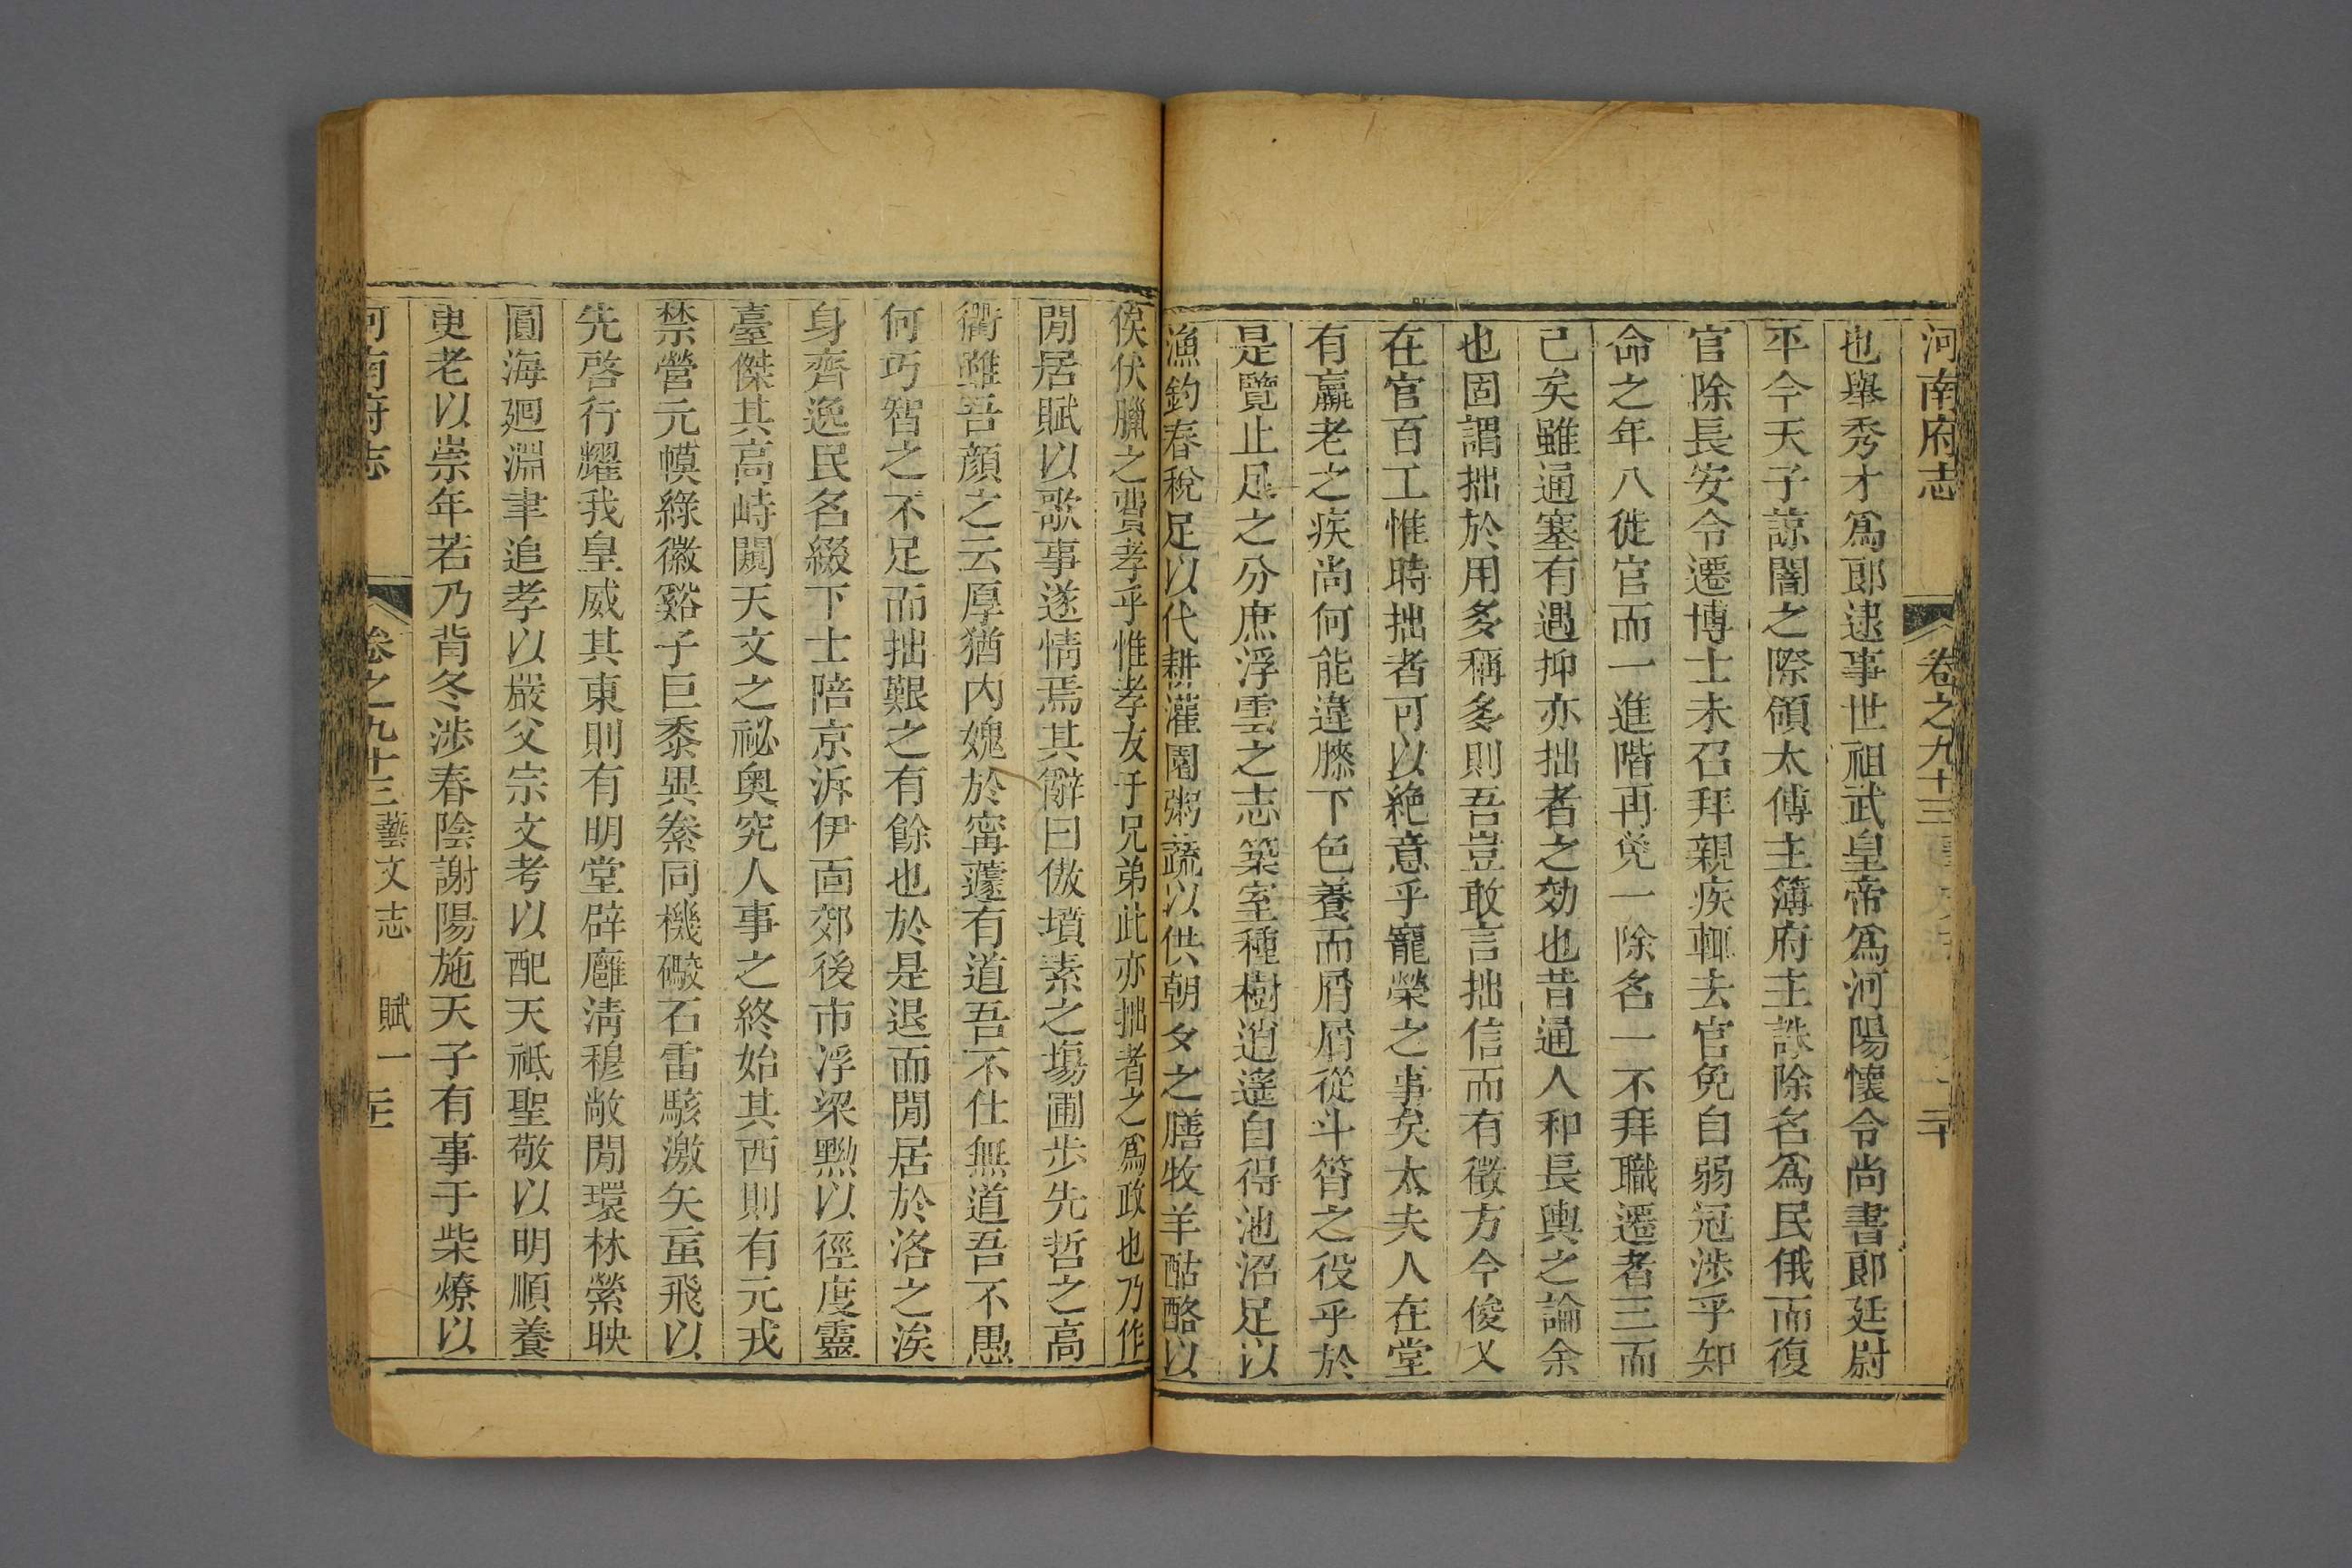 河南府志 卷之九十三 二十
也舉秀才爲郎逮事世祖武皇帝爲河陽懷令尚書郎廷尉
平今天子諒闇之際領太傅主簿府主誅除名爲民俄而復
官除長安令遷博士未召拜親疾輒去官免自弱冠涉乎知
命之年八徙官而一進階再免一除名一不拜職遷者三而
己矣雖通塞有遇抑亦拙者之効也昔通人和長輿之論余
也固謂拙於用多稱多則吾豈敢言拙信而有徵方今俊乂
在官百工惟時拙者可以絶意乎寵榮之事矣太夫人在堂
有羸老之疾尚何能違膝下色養而屑屑從斗筲之役乎於
是覽止足之分庶浮雲之志築室種樹逍遙自得池沼足以
漁釣春稅足以代耕灌園粥蔬以供朝夕之膳牧羊酤酪以
俟伏臘之費孝乎惟孝友于兄弟此亦拙者之爲政也乃作
閒居賦以歌事遂情焉其辭曰傲墳素之塲圃步先哲之高
衢雖吾顔之云厚猶内媿於甯蘧有道吾不仕無道吾不愚
何巧智之不足而拙艱之有餘也於是退而閒居於洛之涘
身齊逸民名綴下士陪京泝伊面郊後市浮梁黝以徑度靈
臺傑其高峙闚天文之祕奥究人事之終始其西則有元戎
禁營元幙綠徽谿子巨黍異絭同機礮石雷駭激矢䖟飛以
先啓行耀我皇威其東則有明堂辟廱清穆敞閒環林縈映
圓海廻淵聿追孝以嚴父宗文考以配天祗聖敬以明順養
更老以崇年若乃背冬涉春陰謝陽施天子有事于柴燎以
河南府志 卷之九十三 藝文志 賦一